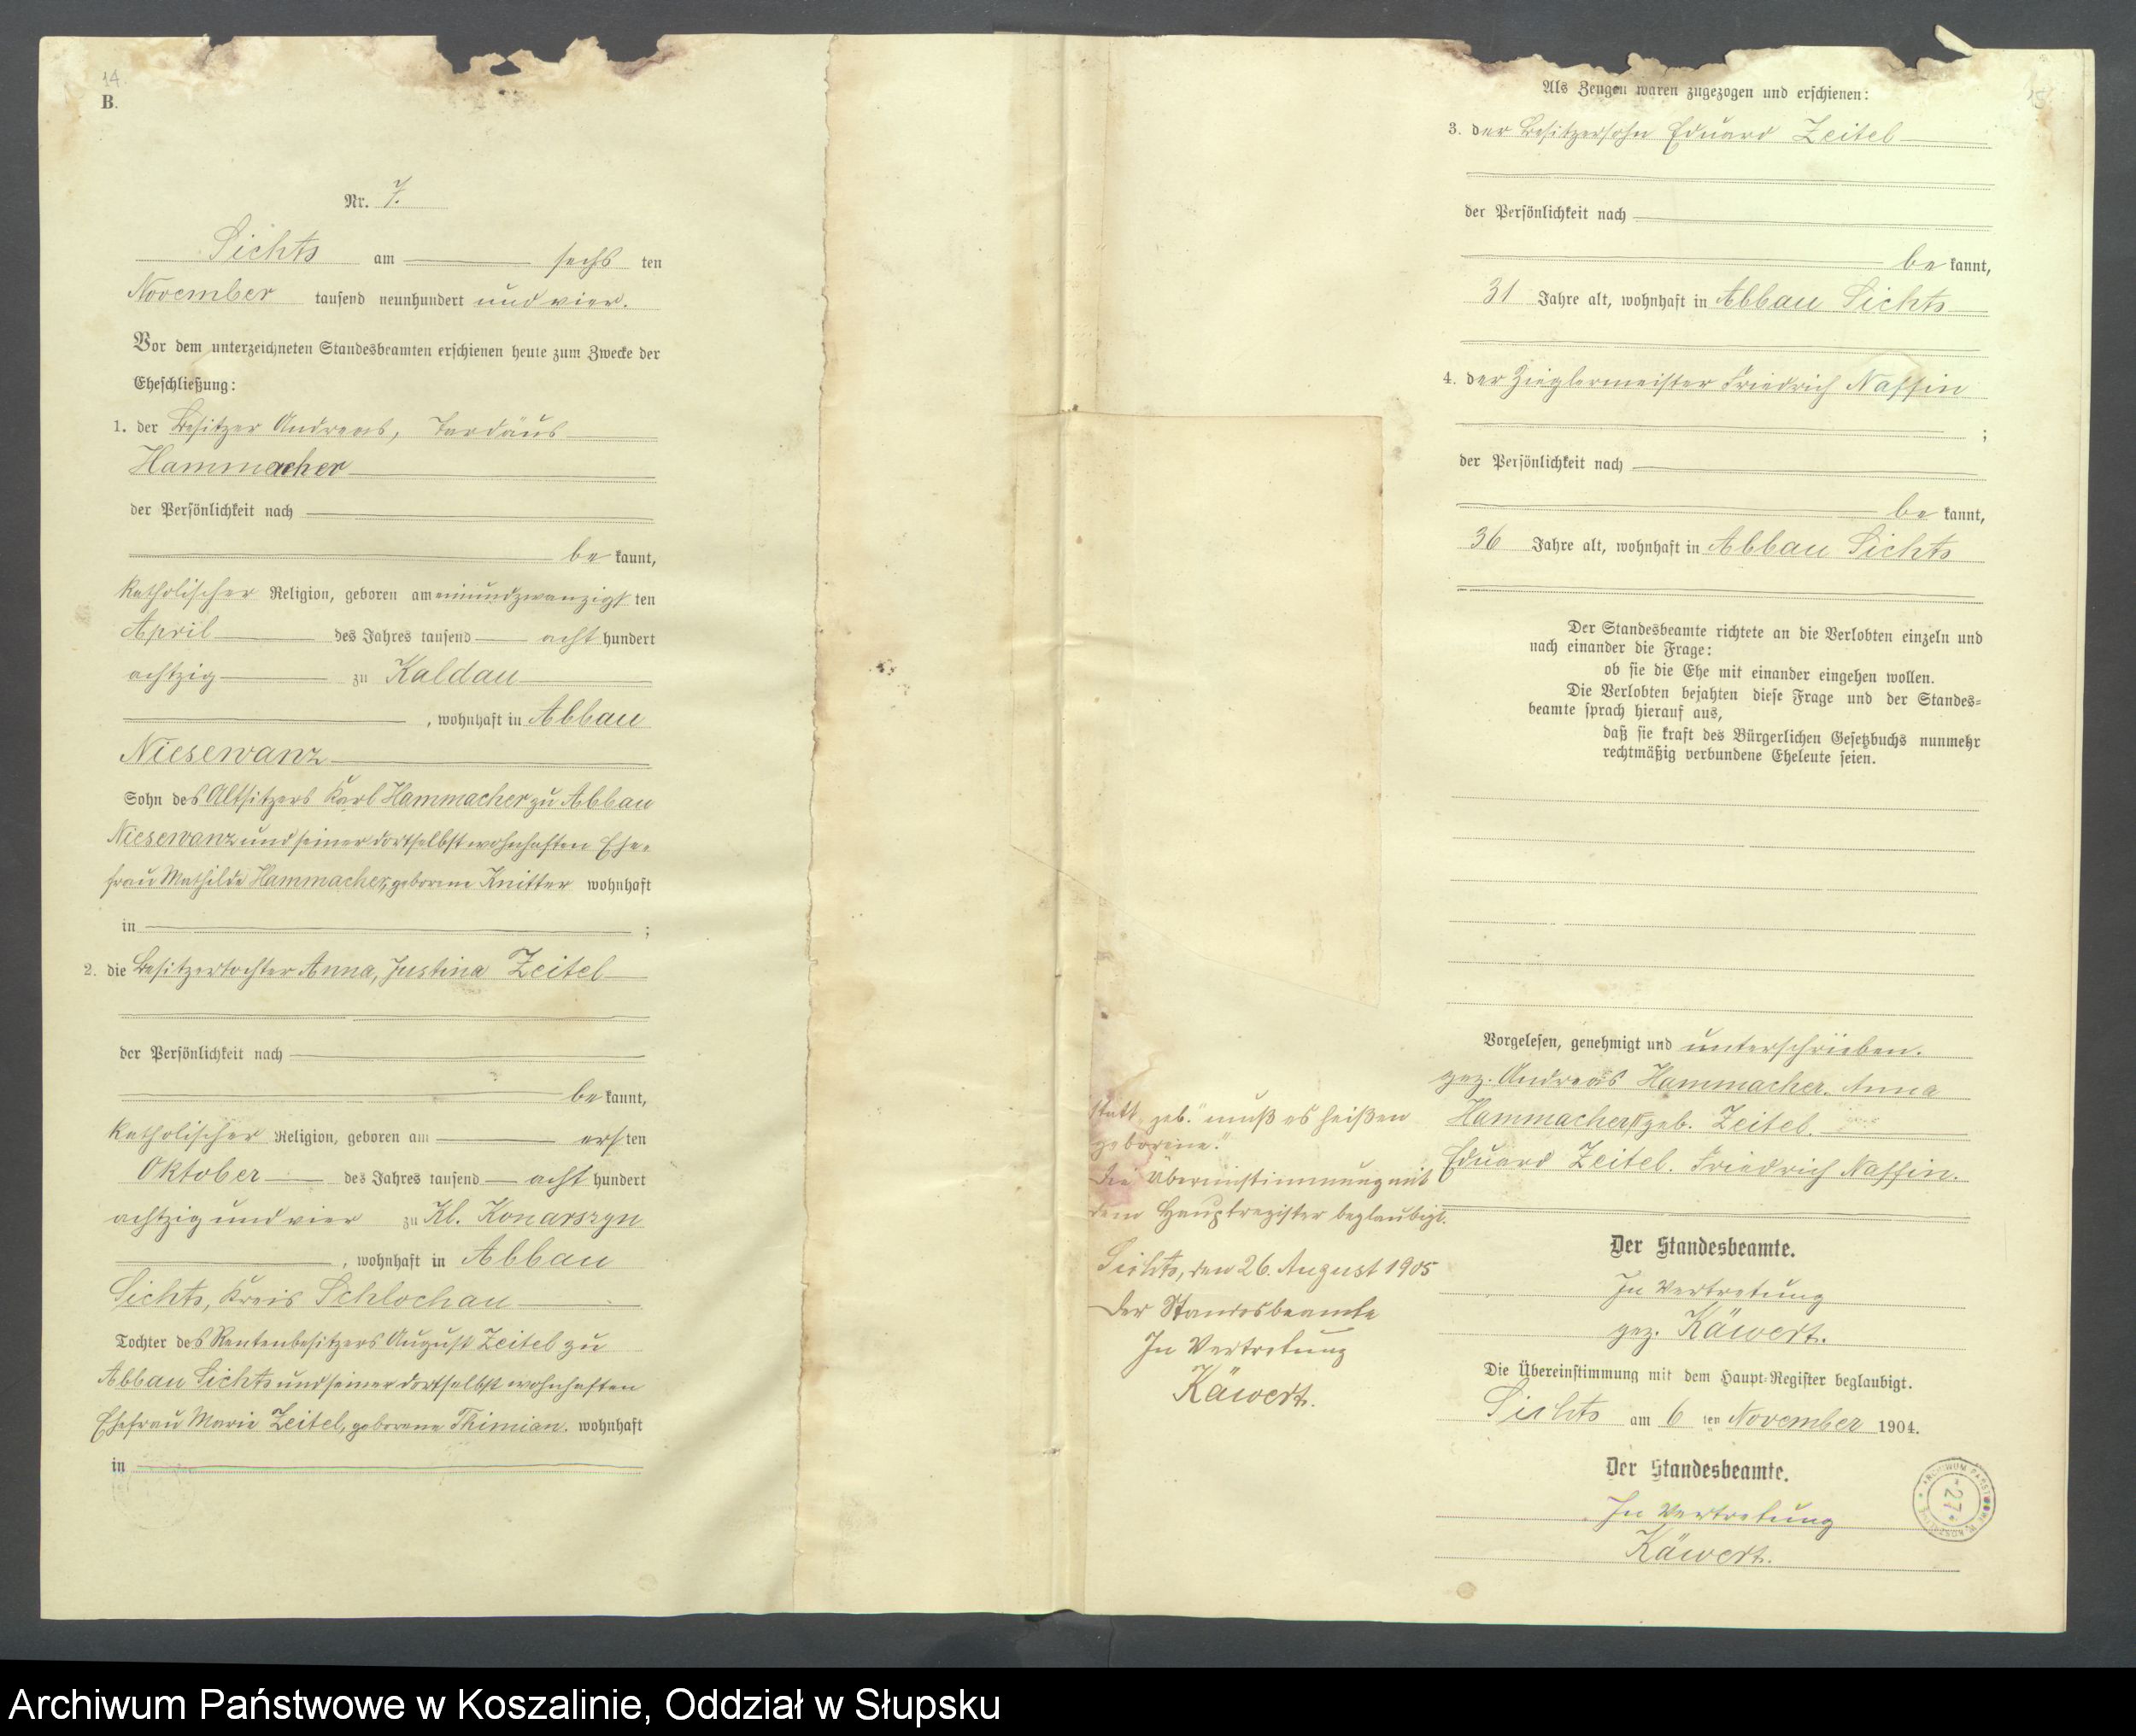 14
B.
Nr. 7.
Sichts am sechs ten
November tausend neunhundert und vier.
Vor dem unterzeichneten Standesbeamten erschienen heute zum Zwecke der
Eheschließung:
1. der Besitzer Andreas, Tardäus
Hammacher
der Persönlichkeit nach
be kannt,
katholischer Religion, geboren am einundzwanzigs ten
April des Jahres tausend acht hundert
achtzig zu Kaldau
, wohnhaft in Abbau
Niesewanz
Sohn des Altsitzers Karl Hammacher zu Abbau
Niesewanz und seiner dortselbst wohnhaften Ehe-
frau Mathilde Hammacher, geborene Knitter wohnhaft
in ;
2. die Besitzertochter Anna, Justina Zeitel
der Persönlichkeit nach
be kannt,
katholischer Religion, geboren am ersten
Oktober des Jahres tausend acht hundert
achtzig und vier zu Kl. Konarszyn
, wohnhaft in Abbau
Sichts, Kreis Schlochau
Tochter des Rentenbesitzers August Zeitel zu
Abbau Sichts und seiner dortselbst wohnhaften
Ehefrau Marie Zeitel, geborene Thimian. wohnhaft
in
15
Als Zeugen waren zugezogen und erschienen:
3. der Besitzersohn Eduard Zeitel
der Persönlichkeit nach
be kannt,
31 Jahre alt, wohnhaft in Abbau Sichts
4. der Zieglermeister Friedrich Naffin
;
der Persönlichkeit nach
be kannt,
36 Jahre alt, wohnhaft in Abbau Sichts
Der Standesbeamte richtete an die Verlobten einzeln und
nach einander die Frage:
ob sie die Ehe mit einander eingehen wollen.
Die Verlobten bejahten diese Frage und der Standes-
beamte sprach hierauf aus,
daß sie kraft des Bürgerlichen Gesetzbuchs nunmehr
rechtmäßig verbundene Eheleute seien.
Vorgelesen, genehmigt und unterschrieben.
gez. Andreas Hammacher. Anna
Hammacher geb. Zeitel.
Eduard Zeitel. Friedrich Naffin.
Der Standesbeamte.
In Vertretung
gez. Käwert.
Die Übereinstimmung mit dem Haupt-Register beglaubigt.
Sichts am 6 ten November 1904.
Der Standesbeamte.
In Vertretung
Käwert.
statt "geb." muß es heißen
"geborene."
Die Übereinstimmung mit
dem Hauptregister beglaubigt.
Sichts, den 26. August 1905
Der Standesbeamte
In Vertretung
Käwert.
27
Archiwum Państwowe w Koszalinie, Oddział w Słupsku